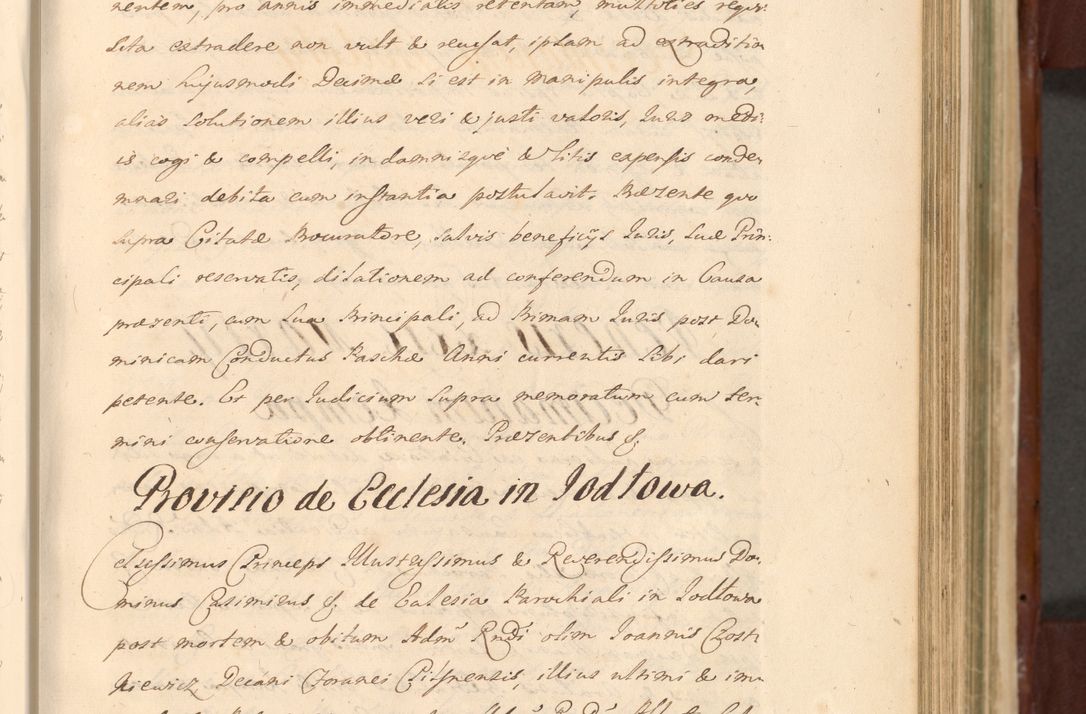 nentem, pro annis immediatis retentam, multoties requi-
sita extradere non vult & recusat, ipsam ad extraditio
nem hujusmodi Decimæ si est in manipulis integra,
alias solutionem illius veri & justi valoris, Juris medi-
is cogi & compelli, in damnisque & litis expensis conde-
mnari debita cum instantia postulavit. Præsente quo
supra Citatæ Procuratore, salvis beneficijs Juris, suæ Prin-
cipali reservatis, dilationem ad conferendum in Causa
præsenti, cum sua Principali, ad Primam Juris post Do-
minicam Conductus Paschæ Anni currentis sibi dari
petente. Et per Judicium supra memoratum cum ter-
mini conservatione obtinente. Præsentibus &.
Provisio de Ecclesia in Jodłowa.
Celsissimus Princeps Illustrissimus & Reverendissimus Do-
minus Casimirus &. de Eclesia Parochiali in Jodłowa
post mortem & obitum Adm Rndi olim Joannis Czost
kiewicz Decani Foranei Pilsnensis, illius ultimi & im